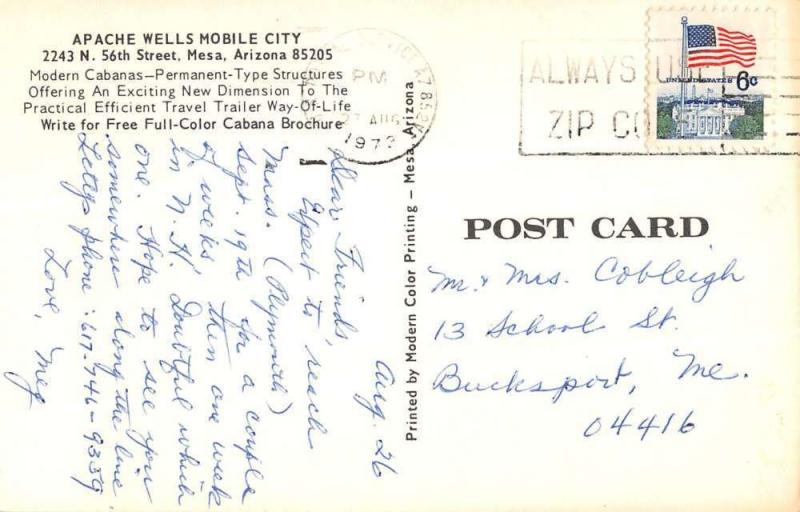 APACHE WELLS MOBILE CITY
2243 N. 56th Street, Mesa, Arizona 85205
Modern Cabanas—Permanent-Type Structures
Offering An Exciting New Dimension To The
Practical Efficient Travel Trailer Way-Of-Life
Write for Free Full-Color Cabana Brochure
PM
27 AUG
1973
ALWAYS USE
ZIP CO
UNITED STATES 6c
Aug. 26
Dear Friends,
Expect to reach
Mass. (Plymouth)
Sept. 19th for a couple
of weeks then one week
in N.H. Doubtful which
one. Hope to see you
somewhere along the line
Letty's phone: 617-746-9339
Love, Meg
Printed by Modern Color Printing — Mesa, Arizona
POST CARD
Mr. & Mrs. Cobleigh
13 School St.
Bucksport, Me.
04416